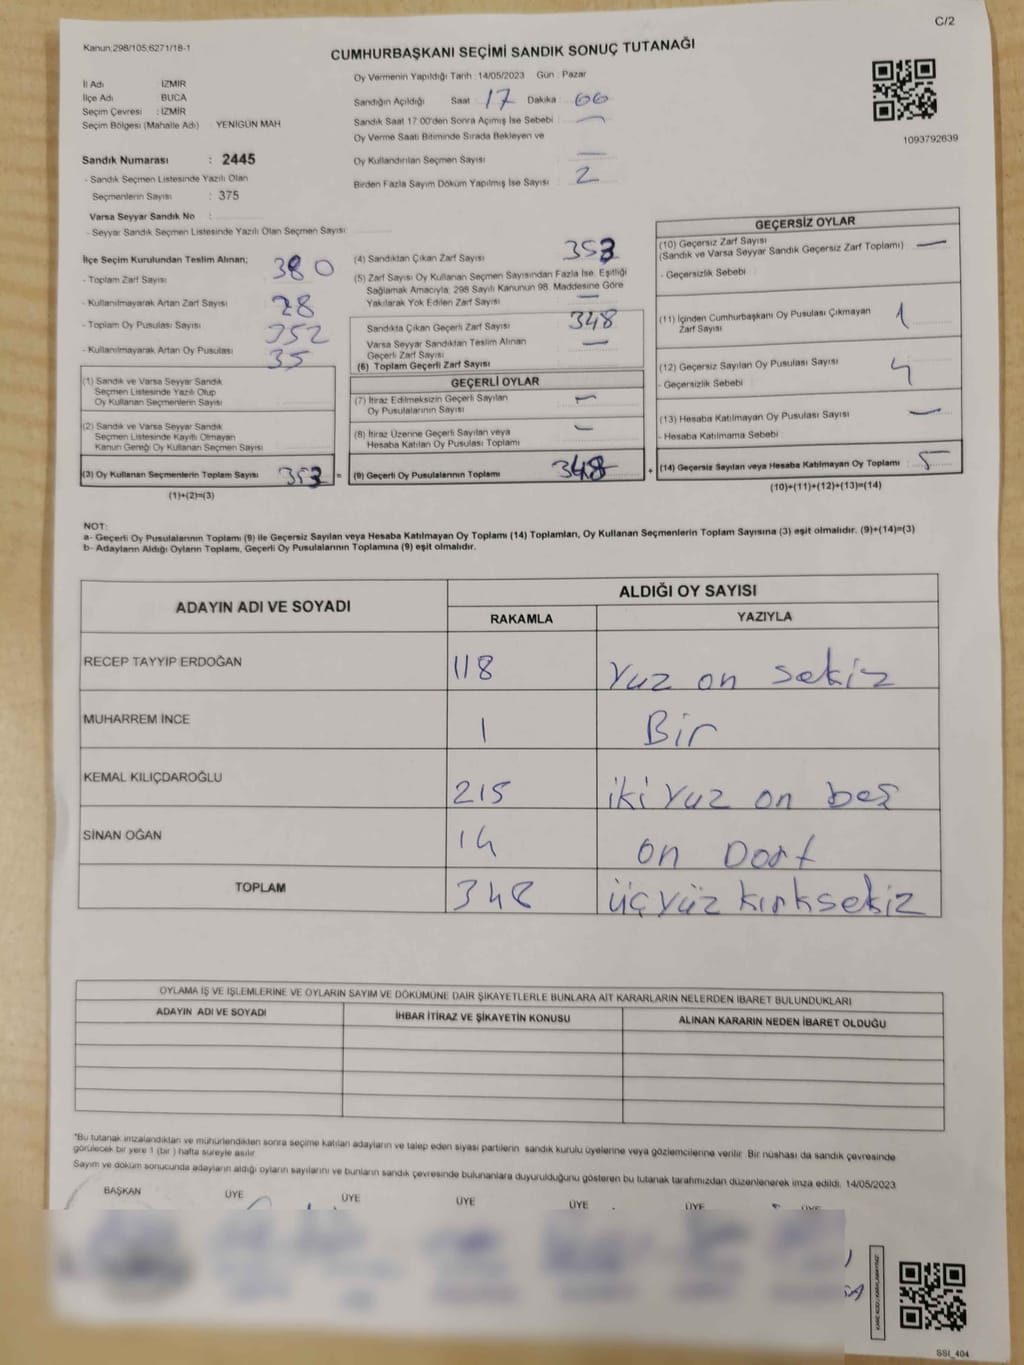 C/2
Kanun:298/105;6271/18-1
CUMHURBAŞKANI SEÇİMİ SANDIK SONUÇ TUTANAĞI
İl Adı : İZMİR
İlçe Adı : BUCA
Seçim Çevresi : İZMİR
Seçim Bölgesi (Mahalle Adı) : YENİGÜN MAH
Sandık Numarası : 2445
- Sandık Seçmen Listesinde Yazılı Olan
Seçmenlerin Sayısı : 375
Varsa Seyyar Sandık No :
- Seyyar Sandık Seçmen Listesinde Yazılı Olan Seçmen Sayısı:
Oy Vermenin Yapıldığı Tarih : 14/05/2023 Gün : Pazar
Sandığın Açıldığı Saat : 17 Dakika : 00
Sandık Saat 17:00'den Sonra Açımış İse Sebebi :
Oy Verme Saati Bitiminde Sırada Bekleyen ve
Oy Kullandırılan Seçmen Sayısı : —
Birden Fazla Sayım Döküm Yapılmış İse Sayısı : 2
1093792639
İlçe Seçim Kurulundan Teslim Alınan;
- Toplam Zarf Sayısı : 380
- Kullanılmayarak Artan Zarf Sayısı : 28
- Toplam Oy Pusulası Sayısı :
- Kullanılmayarak Artan Oy Pusulası : 35
(1) Sandık ve Varsa Seyyar Sandık
Seçmen Listesinde Yazılı Olup
Oy Kullanan Seçmenlerin Sayısı :
(2) Sandık ve Varsa Seyyar Sandık
Seçmen Listesinde Kayıtlı Olmayan
Kanun Gereği Oy Kullanan Seçmen Sayısı :
(3) Oy Kullanan Seçmenlerin Toplam Sayısı : 353 =
(1)+(2)=(3)
(4) Sandıktan Çıkan Zarf Sayısı : 353
(5) Zarf Sayısı Oy Kullanan Seçmen Sayısından Fazla İse, Eşitliği
Sağlamak Amacıyla; 298 Sayılı Kanunun 98. Maddesine Göre
Yakılarak Yok Edilen Zarf Sayısı : —
Sandıkta Çıkan Geçerli Zarf Sayısı : 348
Varsa Seyyar Sandıktan Teslim Alınan
Geçerli Zarf Sayısı : —
(6) Toplam Geçerli Zarf Sayısı :
GEÇERLİ OYLAR
(7) İtiraz Edilmeksizin Geçerli Sayılan
Oy Pusulalarının Sayısı : —
(8) İtiraz Üzerine Geçerli Sayılan veya
Hesaba Katılan Oy Pusulası Toplamı : —
(9) Geçerli Oy Pusulalarının Toplamı : 348 +
GEÇERSİZ OYLAR
(10) Geçersiz Zarf Sayısı : —
(Sandık ve Varsa Seyyar Sandık Geçersiz Zarf Toplamı)
- Geçersizlik Sebebi
(11) İçinden Cumhurbaşkanı Oy Pusulası Çıkmayan : 1
Zarf Sayısı
(12) Geçersiz Sayılan Oy Pusulası Sayısı : 4
- Geçersizlik Sebebi
(13) Hesaba Katılmayan Oy Pusulası Sayısı : —
- Hesaba Katılmama Sebebi
(14) Geçersiz Sayılan veya Hesaba Katılmayan Oy Toplamı : 5
(10)+(11)+(12)+(13)=(14)
NOT:
a- Geçerli Oy Pusulalarının Toplamı (9) ile Geçersiz Sayılan veya Hesaba Katılmayan Oy Toplamı (14) Toplamları, Oy Kullanan Seçmenlerin Toplam Sayısına (3) eşit olmalıdır. (9)+(14)=(3)
b- Adayların Aldığı Oyların Toplamı, Geçerli Oy Pusulalarının Toplamına (9) eşit olmalıdır.
ADAYIN ADI VE SOYADI
ALDIĞI OY SAYISI
RAKAMLA YAZIYLA
RECEP TAYYİP ERDOĞAN 118 Yuz on sekiz
MUHARREM İNCE 1 Bir
KEMAL KILIÇDAROĞLU 215 iki Yuz on beş
SİNAN OĞAN 14 on Dort
TOPLAM 348 üçyüz kırksekiz
OYLAMA İŞ VE İŞLEMLERİNE VE OYLARIN SAYIM VE DÖKÜMÜNE DAİR ŞİKAYETLERLE BUNLARA AİT KARARLARIN NELERDEN İBARET BULUNDUKLARI
ADAYIN ADI VE SOYADI İHBAR İTİRAZ VE ŞİKAYETİN KONUSU ALINAN KARARIN NEDEN İBARET OLDUĞU
"Bu tutanak imzalandıktan ve mühürlendikten sonra seçime katılan adayların ve talep eden siyasi partilerin sandık kurulu üyelerine veya gözlemcilerine verilir. Bir nüshası da sandık çevresinde
görülecek bir yere 1 (bir) hafta süreyle asılır.
Sayım ve döküm sonucunda adayların aldığı oyların sayılarını ve bunların sandık çevresinde bulunanlara duyurulduğunu gösteren bu tutanak tarafımızdan düzenlenerek imza edildi. 14/05/2023
BAŞKAN ÜYE ÜYE ÜYE ÜYE ÜYE ÜYE
SSI_404